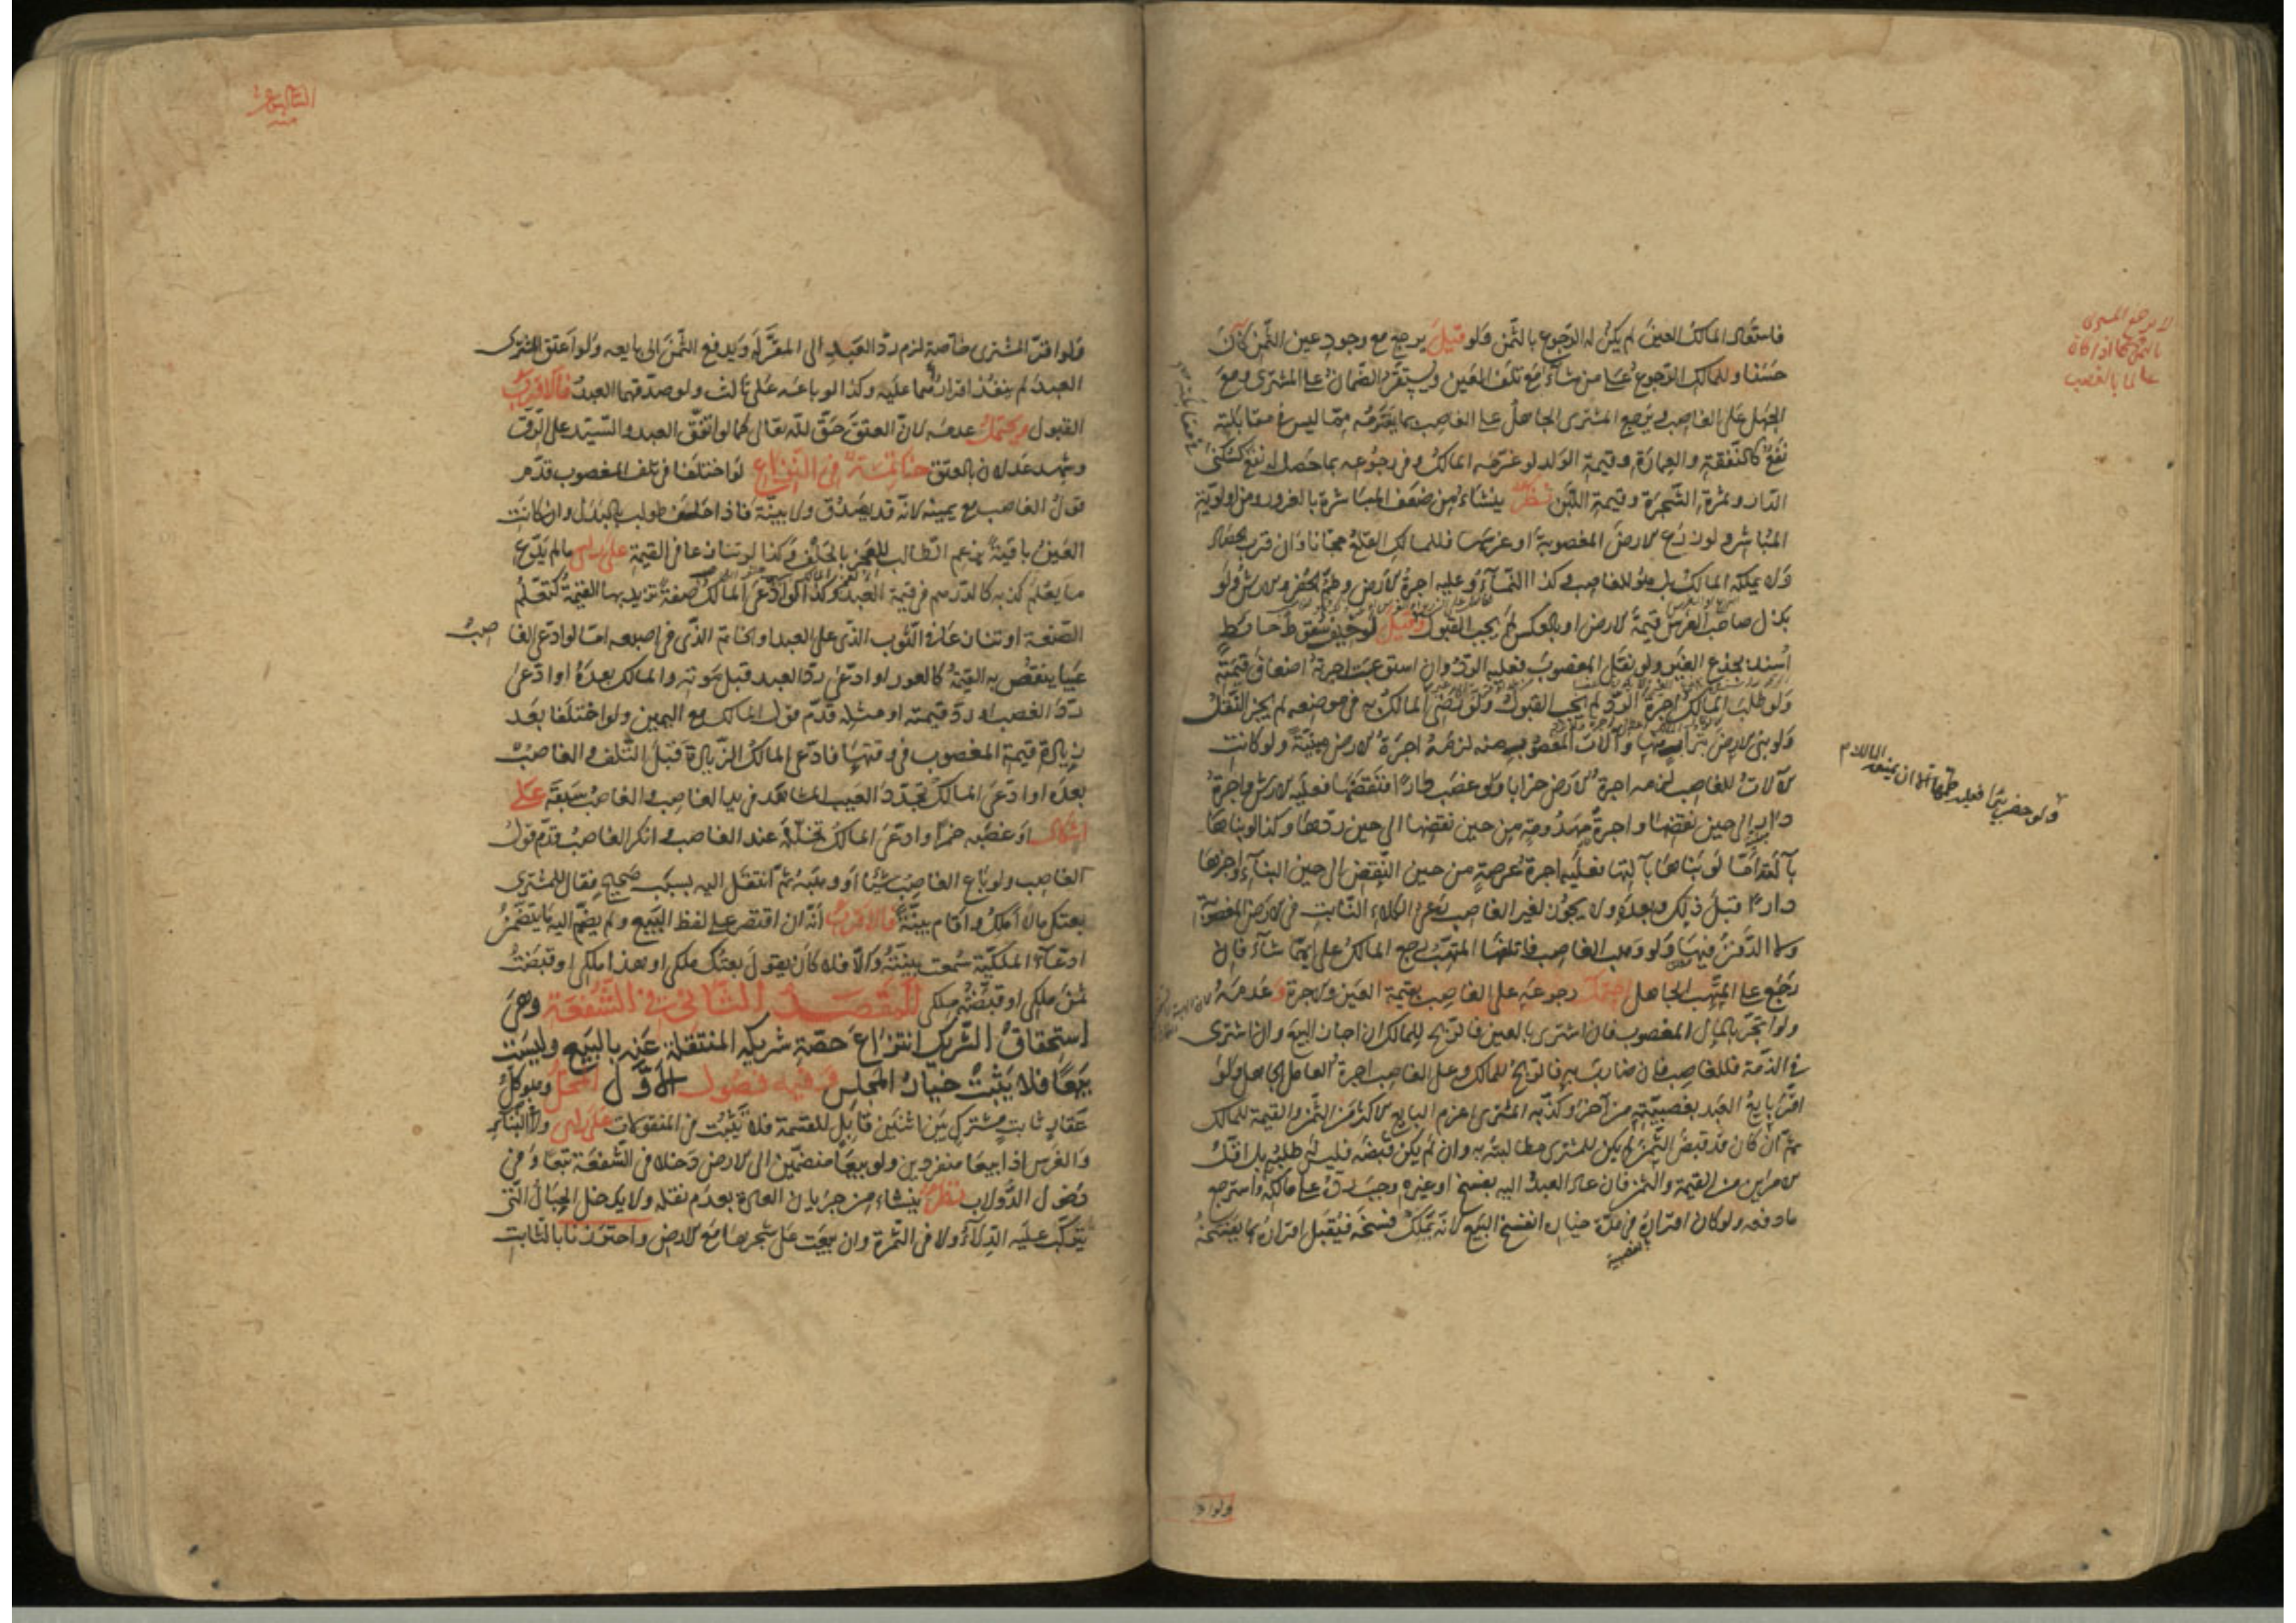 فاستعاد المالك العين لم يكن له الرجوع بالثمن ولو قيل يرجع مع وجود عين الثمن كان
حسنا وللمالك الرجوع على من شاء مع تلف العين ويستقر الضمان على المشتري ومع
الجهل على الغاصب ويرجع المشتري الجاهل على الغاصب بما يغترمه مما ليس في مقابلته
نفع كالنفقة والعمارة وقيمة الولد لو غرمه المالك وفي رجوعه بما حصل له نفع كسكنى
الدار وثمرة الشجرة وقيمة اللبن نظر ينشاء من ضعف المباشرة بالغرور ومن اولوية
المباشر ولو زرع الارض المغصوبة او غرسها فللمالك القلع مجانا وان قرب الحصاد
ولا يملكه المالك بل هو للغاصب وكذا النماء وعليه اجرة الارض وطم الحفر والارش ولو
بذل صاحب الغرس قيمة الارض او بالعكس لم يجب القبول وقيل لو خيف سقوط حائط
اسند بجذع الغير ولو نقل المغصوب فعليه الرد وان استوعبت اجرته اضعاف قيمته
ولو طلب المالك اجرة الرد لم يجب القبول ولو رضي المالك به في موضعه لم يجز النقل
ولو بنى الارض بتراب منها وآلات المغصوب منه لزمه اجرة الارض مبنية ولو كانت
الآلات للغاصب لزمه اجرة الارض خرابا ولو غصب دارا فنقضها فعليه الارش واجرة
دار الى حين نقضها واجرة مهدومة من حين نقضها الى حين ردها وكذا لو بناها
بآلته اما لو بناها بآلتها فعليه اجرة عرصة من حين النقض الى حين البناء واجرتها
دارا قبل ذلك وبعده ولا يجوز لغير الغاصب رعي الكلاء النابت في الارض المغصوبة
ولا الدفن فيها ولو وهب الغاصب فاتلفها المتهب رجع المالك على ايهما شاء فان
رجع على المتهب الجاهل احتمل رجوعه على الغاصب بقيمة العين والاجرة وعدمه
ولو اتجر بالمال المغصوب فان اشترى بالعين فالربح للمالك ان اجاز البيع وان اشترى
في الذمة فللغاصب فان ضارب به فالربح للمالك وعلى الغاصب اجرة العامل الجاهل ولو
اقر بايع العبد بغصبيته من آخر وكذبه المشتري اغرم البايع الاكثر من الثمن والقيمة للمالك
ثم ان كان قد قبض الثمن لم يكن للمشتري مطالبته به وان لم يكن قبضه فليس له طلبه بل اقل
الامرين من القيمة والثمن فان عاد العبد اليه بفسخ او غيره وجب رده على مالكه واسترجع
ما دفعه ولو كان اقراره في مدة خياره انفسخ البيع لانه يملك فسخه فيقبل اقراره بما يفسخه
لا يرجع المشتري
بالثمن اذا كان
عالما بالغصب
ولو حفر بئرا فعليه طمها الا ان يمنعه المالك
ولو اقر
ولو اقر المشتري خاصة لزم رد العبد الى المقر له ويدفع الثمن الى بايعه ولو اعتق المشتري
العبد لم ينفذ اقرارهما عليه وكذا لو باعه على ثالث ولو صدقهما العبد فالاقرب
القبول ويحتمل عدمه لان العتق حق لله تعالى كما لو اتفق العبد والسيد على الرق
وشهد عدلان بالعتق خاتمة في النزاع لو اختلفا في تلف المغصوب قدم
قول الغاصب مع يمينه لانه قد يصدق ولا بينة فاذا حلف طولب بالبدل وان كانت
العين باقية بزعم الطالب للعجز بالحلف وكذا لو تنازعا في القيمة على راى ما لم يدع
ما يعلم كذبه كالدرهم في قيمة العبد وكذا لو ادعى المالك صفة تزيد بها القيمة كتعلم
الصنعة او تنازعا في الثوب الذي على العبد او الخاتم الذي في اصبعه اما لو ادعى الغاصب
عيبا ينقص به القيمة كالعور او ادعى رد العبد قبل موته والمالك بعده او ادعى
رد الغصب او رد قيمته او مثله قدم قول المالك مع اليمين ولو اختلفا بعد
زيادة قيمة المغصوب في وقتها فادعى المالك الزيادة قبل التلف والغاصب
بعده او ادعى المالك تجدد العيب المشاهد في يد الغاصب والغاصب سبقه على
اشكال او غصبه خمرا وادعى المالك تخلله عند الغاصب وانكر الغاصب قدم قول
الغاصب ولو باع الغاصب شيئا او وهبه ثم انتقل اليه بسبب صحيح فقال للمشتري
بعتك ما لا املك واقام بينة فالاقرب انه ان اقتصر على لفظ البيع ولم يضم اليه ما يتضمن
ادعاء الملكية سمعت بينته والا فلا كان يقول بعتك ملكي او هذا ملكي او قبضت
ثمن ملكي او قبضته ملكي المقصد الثاني في الشفعة وهي
استحقاق الشريك انتزاع حصة شريكه المنتقلة عنه بالبيع وليست
بيعا فلا يثبت خيار المجلس وفيه فصول الاول المحل وهو كل
عقار ثابت مشترك بين اثنين قابل للقسمة فلا يثبت في المنقولات على راى ولا البناء
والغرس اذا بيعا منفردين ولو بيعا منضمين الى الارض دخلا في الشفعة تبعا وفي
دخول الدولاب نظر ينشاء من جريان العادة بعدم نقله ولا يدخل الحبال التي
تتركب عليه الدلاء ولا في الثمرة وان بيعت على شجرها مع الارض واحترزنا بالثابت